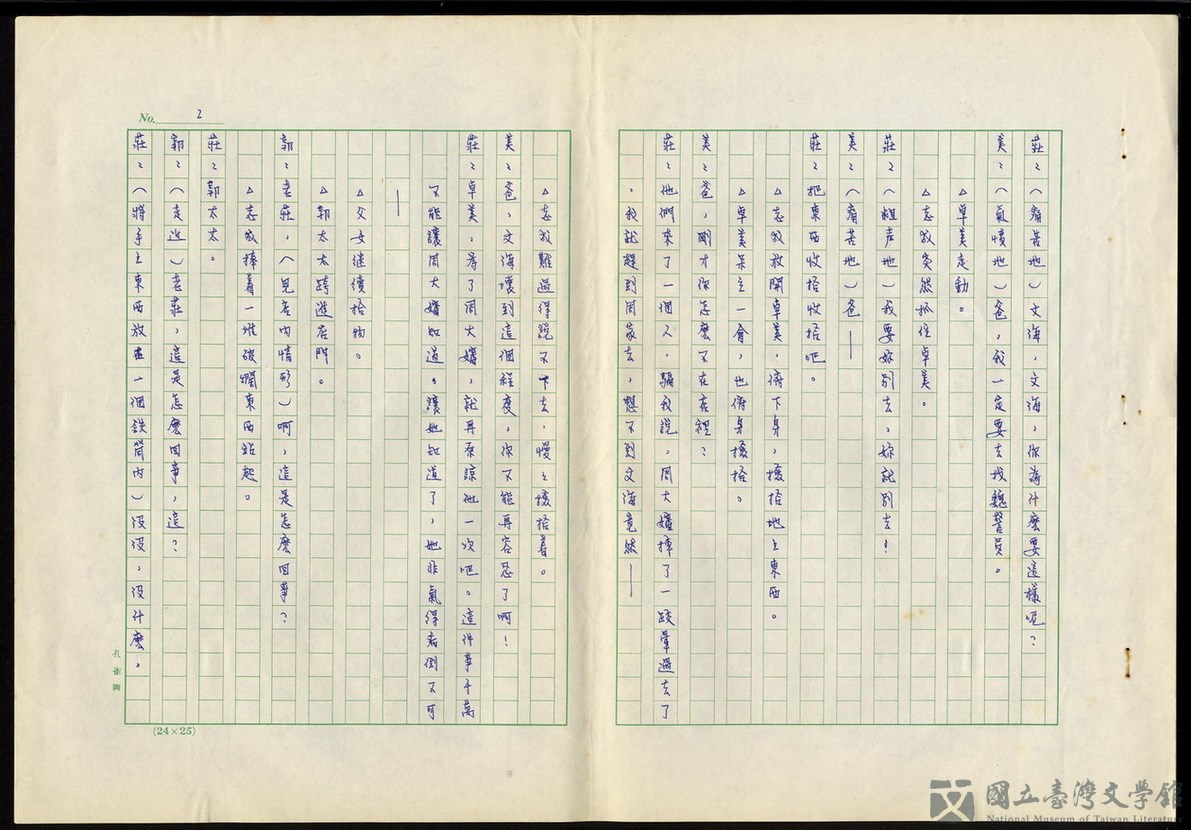 莊：（痛苦地）文海，文海，你為什麼要這樣呢？
美：（氣憤地）爸，我一定要去找魏警員。
△卓美走動。
△志敬突然抓住卓美。
莊：（粗声地）我要妳別去，妳就別去！
美：（痛苦地）爸——
莊：把東西收拾收拾吧。
△志敬放開卓美，俯下身，撿拾地上東西。
卓美呆立一會，也俯身撿拾。
美：爸，剛才你怎麼不在店裡？
莊：他們來了一個人，騙我說，周大嬸摔了一跤暈過去了
，我就趕到周家去，想不到文海竟然——
No. 2
△志敬難過得說不下去，慢慢撿拾着。
美：爸，文海壞到這個程度，你不能再容忍了啊！
莊：卓美，為了周大嬸，就再原諒他一次吧。這件事千萬
不能讓周大嬸知道。讓她知道了，她非氣得病倒不可
——
△父女继續拾物。
△郭太太跨進店門。
郭：老莊，（見店內情形）啊，這是怎麼回事？
△志敬捧着一堆破爛東西站起。
莊：郭太太。
郭：（走近）老莊，這是怎麼回事，這？
莊：（將手上東西放在一個鉄筒內）沒沒，沒什麼，
孔雀牌
(24×25)
國立臺灣文學館
National Museum of Taiwan Literature